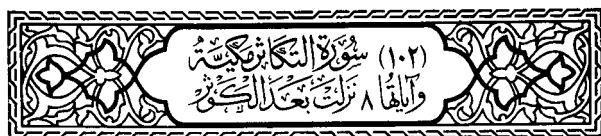 (١٠٢) سُورَة التَّكَاثُر مَكِّيَّة
وَآيَاتُهَا ٨ نَزَلَتْ بَعْدَ الكَوْثَر